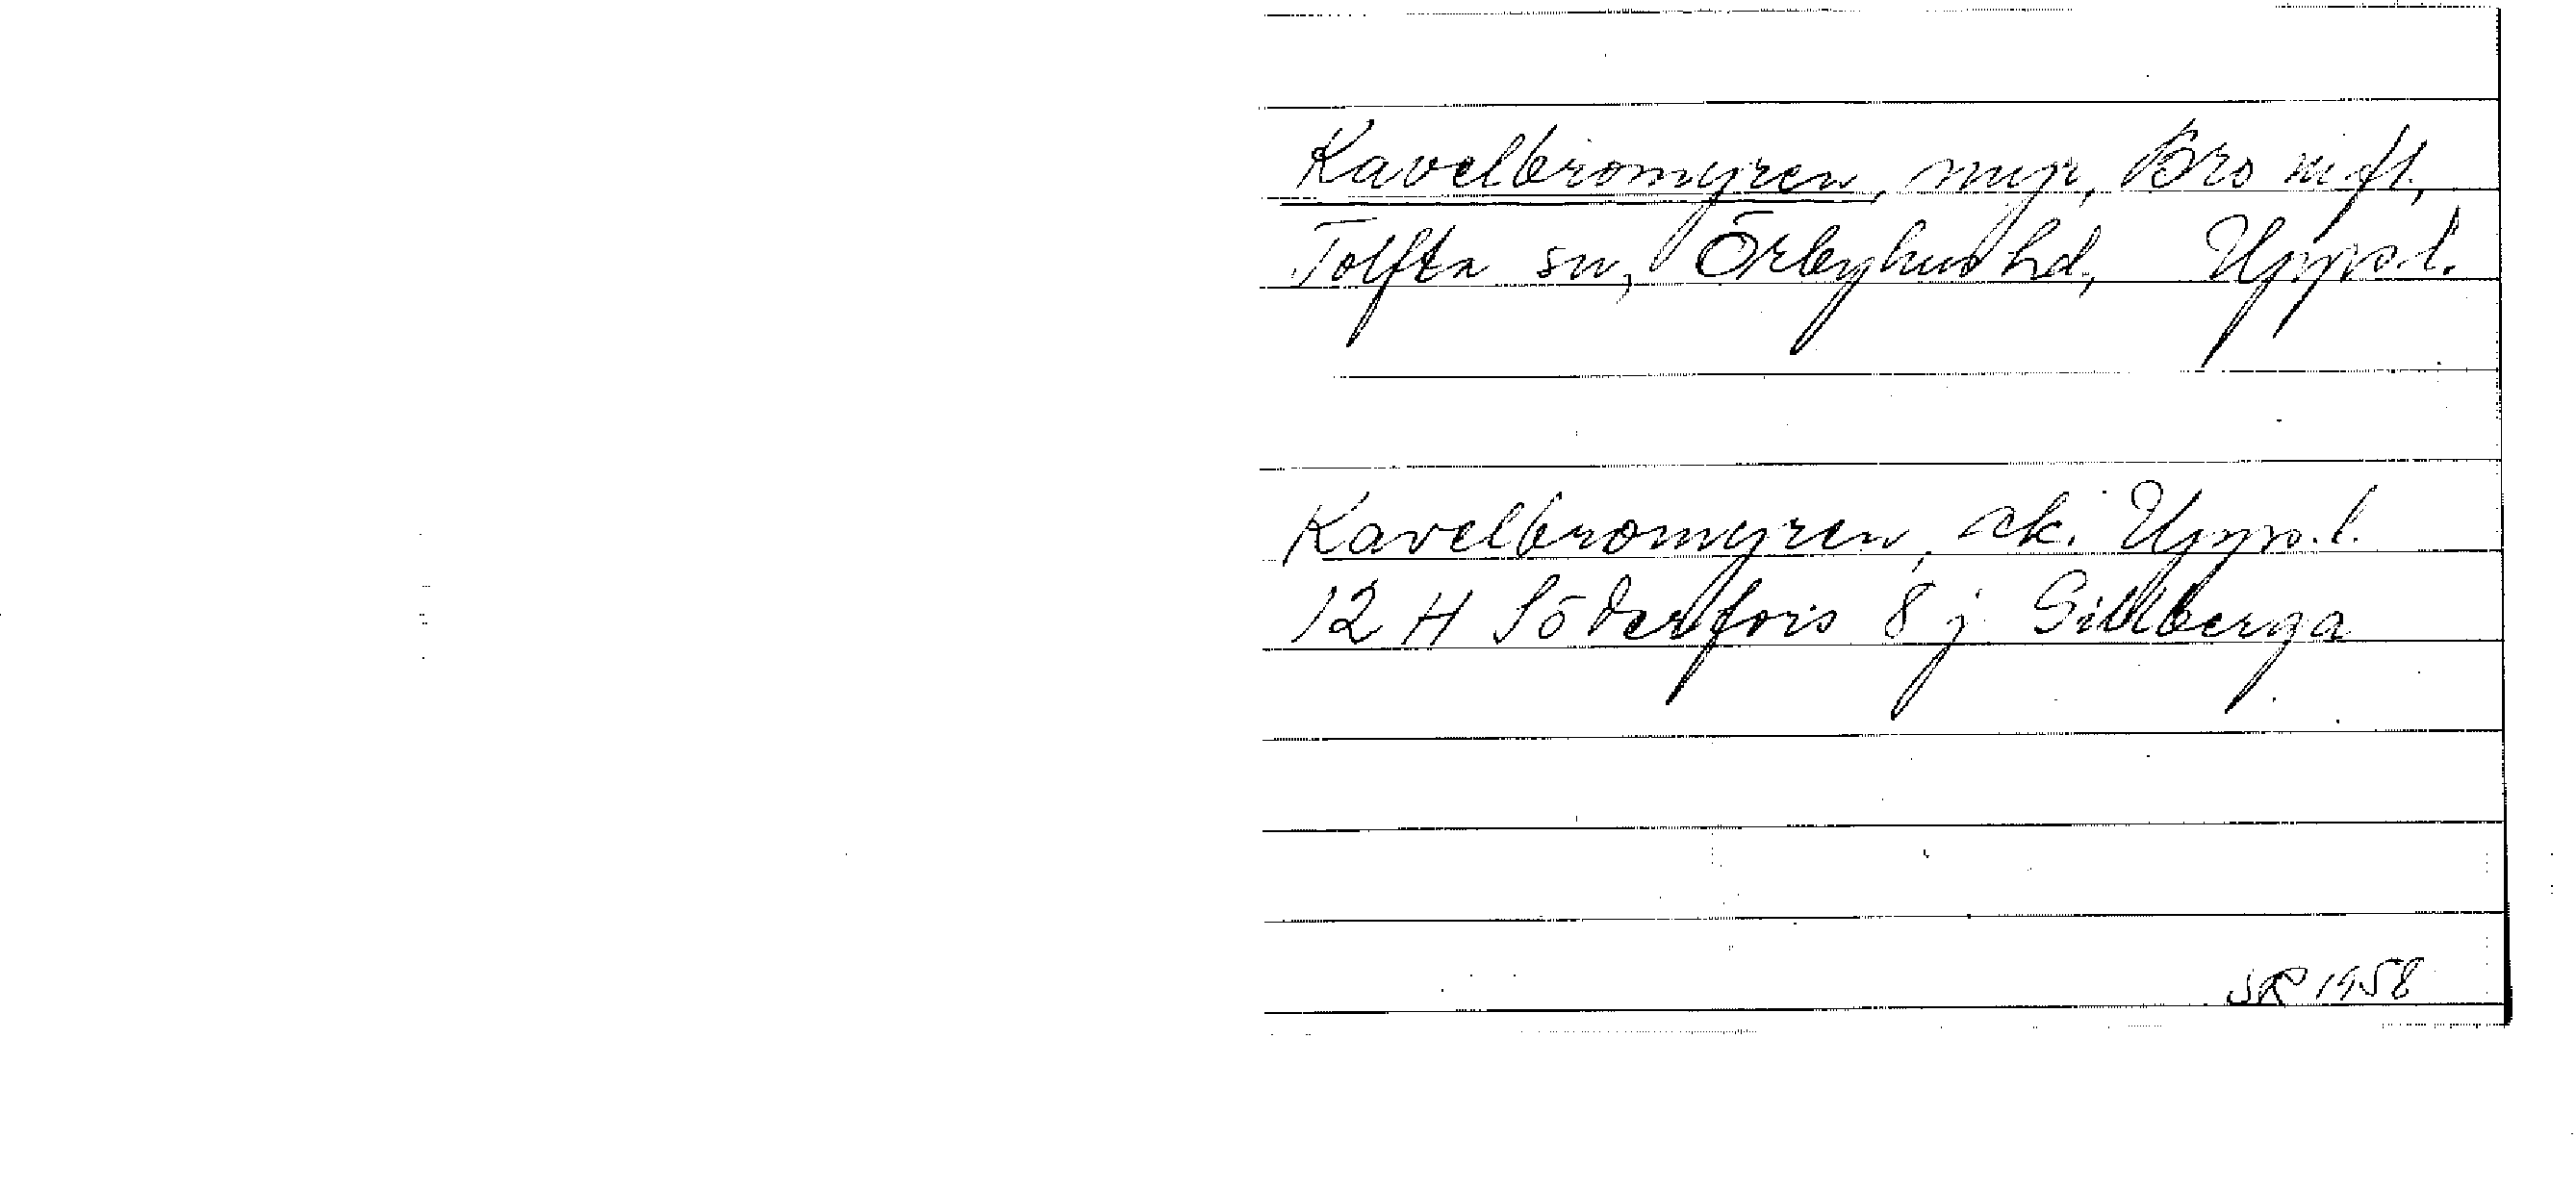 Kavelbromyren, myr, Bro
Tolfta sn, Örbyhus hd, Upps.l.
Kavelbromyren, ek. Upps.l.
12 H Söderfors 8 j Gillberga
SR 1958